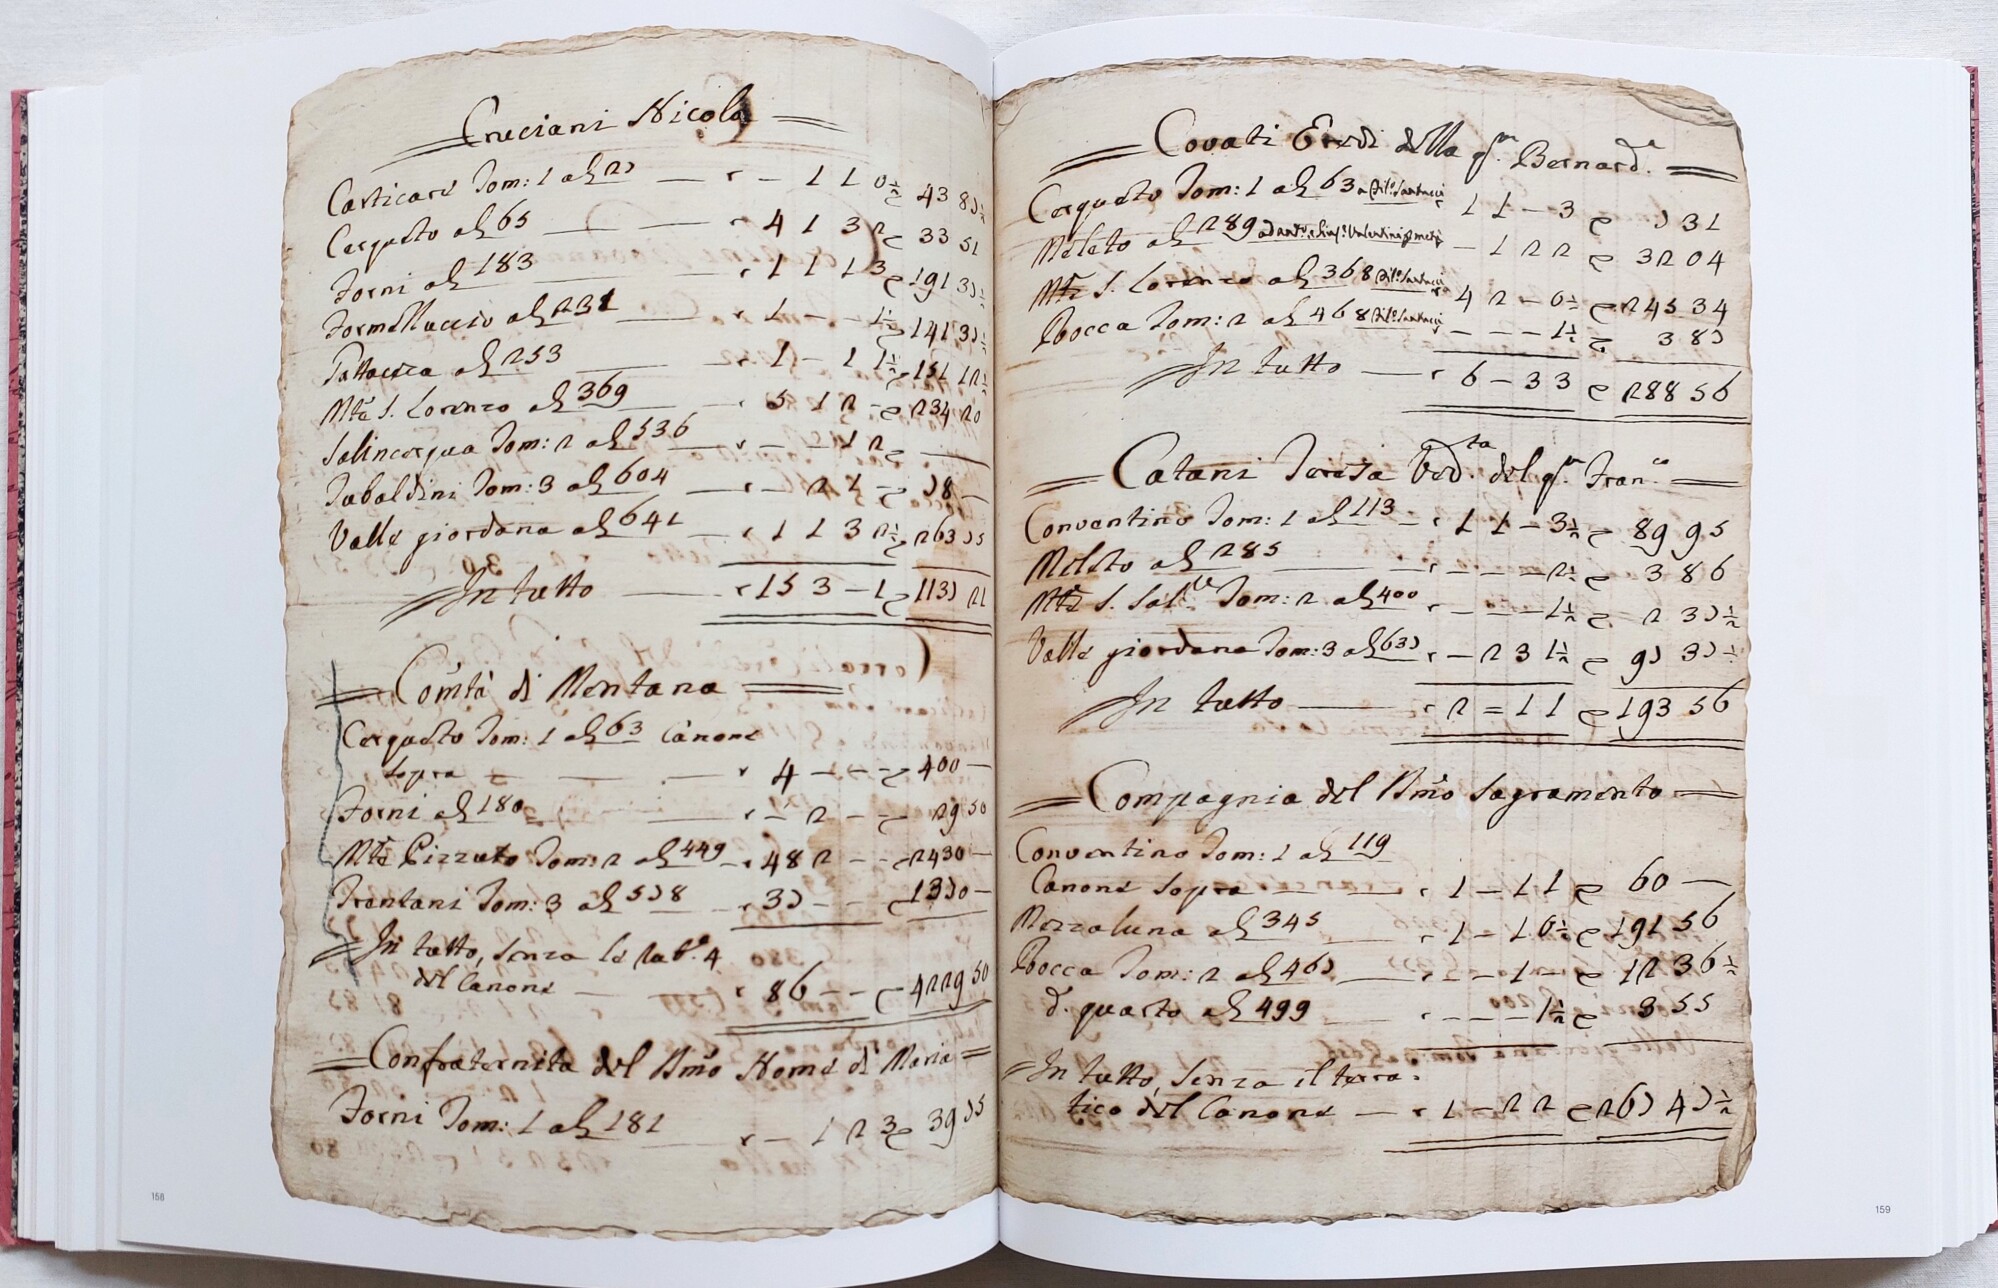 Cruciani Nicola
Carticara Tom: 1 al 27 — — 1 1 0½ 43 87½
Cerqueto al 65 4 1 3 2 33 51
Forni al 183 1 1 1 3 191 37½
Formelluccio al 231 1 – – 1½ 141 37½
Pattaccia al 253 1 – 1 1½ 151 12½
Mte S. Lorenzo al 369 5 1 2 – 234 20
Salincerqua Tom: 2 al 536 – – 1 2 —
Tubaldini Tom: 3 al 604 – 2 1 – 78 —
Valle giordana al 641 1 1 3 2½ 263 75
In tutto 15 3 – 1 1137 21
Comtà di Mentana
Cerqueto Tom: 1 al 63 Canone
sopra 4 – – – 400 —
Forni al 180 – 2 – – 29 50
Mte Pizzuto Tom: 2 al 449 48 2 – – 2430 —
Trentani Tom: 3 al 578 37 – – 1370 —
In tutto, senza le rub. 4
del Canone 86 – – 4229 50
Confraternita del Smo Nome di Maria
Forni Tom: 1 al 181 – 1 2 3 39 75
158
Covati Eredi della qm Bernarda
Cerqueto Tom: 1 al 63 1 1 – 3 731
Meleto al 289 – 1 2 2 32 04
Mte S. Lorenzo al 368 4 2 – 0½ 245 34
Rocca Tom: 2 al 468 – – – 1½ 3 87
In tutto 6 – 3 3 288 56
Catani Teresa Ved.ta del qm Fran.co
Conventino Tom: 1 al 113 1 1 – 3½ 89 95
Meleto al 285 – – – 2½ 3 86
Mte S. Salre Tom: 2 al 400 – – – 1½ 2 37½
Valle giordana Tom: 3 al 637 – 2 3 1½ 97 37½
In tutto 2 = 1 1 193 56
Compagnia del Smo Sagramento
Conventino Tom: 1 al 119
Canone sopra 1 – 1 1 60 —
Mezzaluna al 345 1 – 1 0½ 191 56
Rocca Tom: 2 al 467 – – 1 – 12 36½
d. quarto al 499 – – – 1½ 3 55
In tutto, senza il terra-
tico del Canone 1 – 2 2 267 47½
159